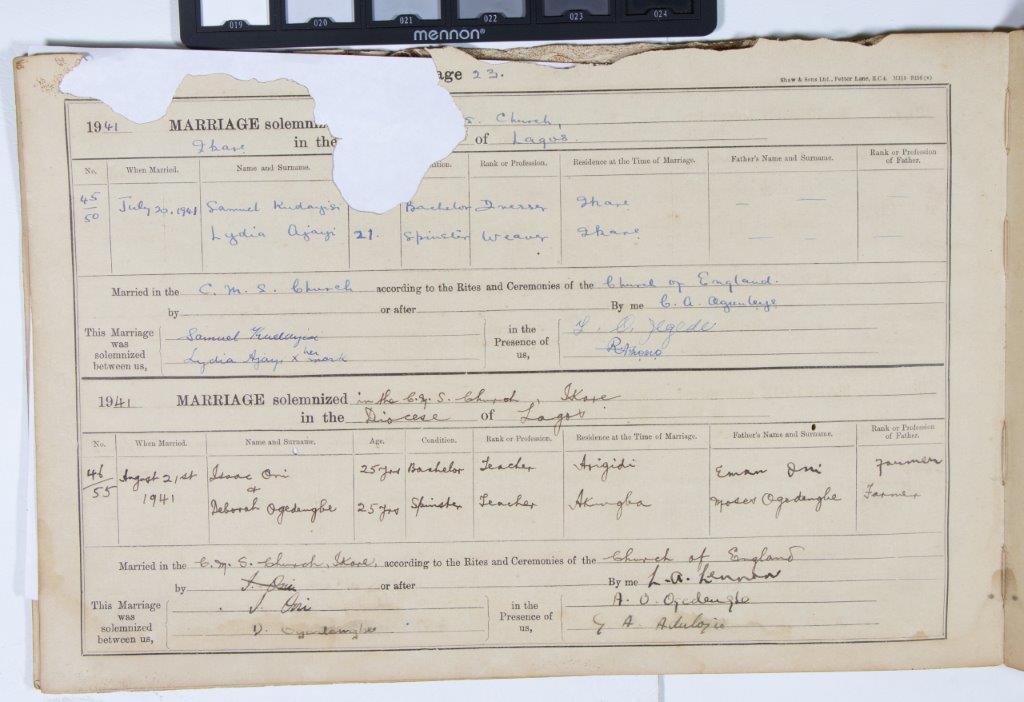 019 020 021 022 023 024
mennon®
age 23.
Shaw & Sons Ltd., Fetter Lane, E.C.4
1941 MARRIAGE solemniz S. Church,
Ikare in the of Lagos.
No. When Married. Name and Surname. Rank or Profession. Residence at the Time of Marriage. Father's Name and Surname. Rank or Profession of Father.
45/50 July 20, 1941 Samuel Kudayisi Bachelor Dresser Ikare — — —
Lydia Ajayi 21. Spinster Weaver Ikare — — —
Married in the C. M. S. Church according to the Rites and Ceremonies of the Church of England.
by or after By me C. A. Ogunleye
This Marriage was solemnized between us, Samuel Kudayisi in the Presence of us, Jegede
Lydia Ajayi x her mark
1941 MARRIAGE solemnized in the C. M. S. Church, Ikare
in the Diocese of Lagos
No. When Married. Name and Surname. Age. Condition. Rank or Profession. Residence at the Time of Marriage. Father's Name and Surname. Rank or Profession of Father.
46/55 August 21st 1941 Isaac Oni 25 yrs Bachelor Teacher Arigidi Eman Oni Farmer
&
Deborah Ogedengbe 25 yrs Spinster Teacher Akungba Moses Ogedengbe Farmer
Married in the C. M. S. Church, Ikare, according to the Rites and Ceremonies of the Church of England
by I. Oni or after By me L. A. Lennon
This Marriage was solemnized between us, I. Oni in the Presence of us, A. O. Ogedengbe
D. Ogedengbe